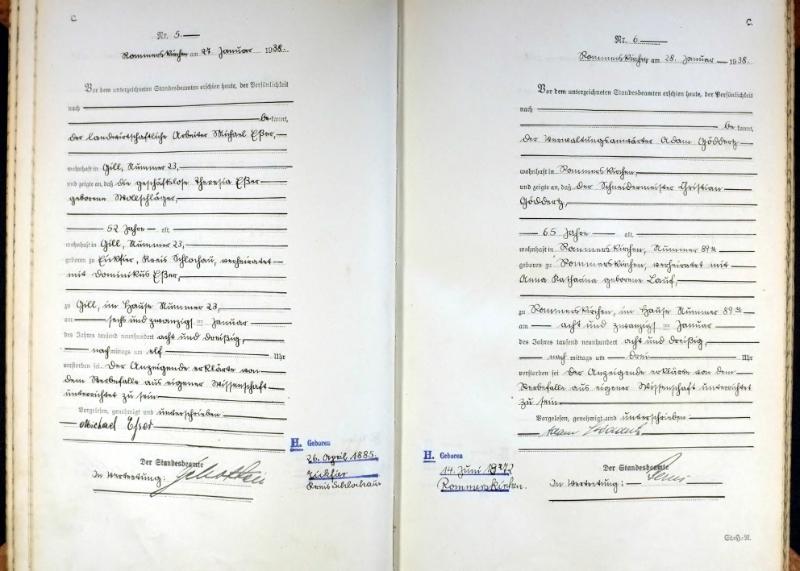 C.
Nr. 5
Rommerskirchen am 27. Januar 1938.
Vor dem unterzeichneten Standesbeamten erschien heute, der Persönlichkeit
nach
bekannt,
der landwirtschaftliche Arbeiter Michael Eßer,
wohnhaft in Gill, Nummer 23,
und zeigte an, daß die geschäftslose Theresia Eßer
geborene Wollschläger,
52 Jahre alt
wohnhaft in Gill, Nummer 23,
geboren zu Eickfier, Kreis Schlochau, verheiratet
mit Dominikus Eßer,
zu Gill, im Hause Nummer 23,
am sechs und zwanzigsten Januar
des Jahres tausend neunhundert acht und dreißig,
nachmittags um elf Uhr
verstorben sei. Der Anzeigende erklärte von
dem Sterbefalle aus eigener Wissenschaft
unterrichtet zu sein
Vorgelesen, genehmigt und unterschrieben
Michael Eßer
Der Standesbeamte
In Vertretung:
H. Geboren
26. April 1885.
Eickfier
Kreis Schlochau
C.
Nr. 6
Rommerskirchen am 28. Januar 1938.
Vor dem unterzeichneten Standesbeamten erschien heute, der Persönlichkeit
nach
bekannt,
der Verwaltungsanwärter Adam Göddertz
wohnhaft in Rommerskirchen,
und zeigte an, daß der Schneidermeister Christian
Göddertz,
65 Jahre alt
wohnhaft in Rommerskirchen, Nummer 89
geboren zu Rommerskirchen, verheiratet mit
Anna Katharina geborene Lauf,
zu Rommerskirchen, im Hause Nummer 89
am acht und zwanzigsten Januar
des Jahres tausend neunhundert acht und dreißig,
nachmittags um drei Uhr
verstorben sei. Der Anzeigende erklärte von dem
Sterbefalle aus eigener Wissenschaft unterrichtet
zu sein
Vorgelesen, genehmigt und unterschrieben
Adam
Der Standesbeamte
In Vertretung:
H. Geboren
14. Juni
Rommerskirchen.